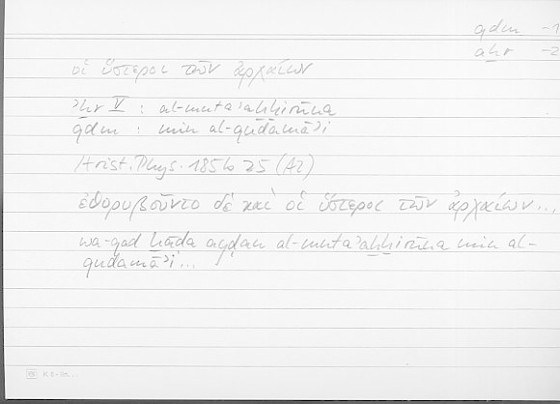 qdm -1
aḫr -2
οἱ ὕστεροι τῶν ἀρχαίων
ʾḫr V : al-mutaʾaḫḫirūna
qdm : min al-qudamāʾi
Arist. Phys. 185b 25 (A2)
ἐθορυβοῦντο δὲ καὶ οἱ ὕστεροι τῶν ἀρχαίων...
wa-qad ayḍan al-mutaʾaḫḫirūna min al-
qudamāʾi...